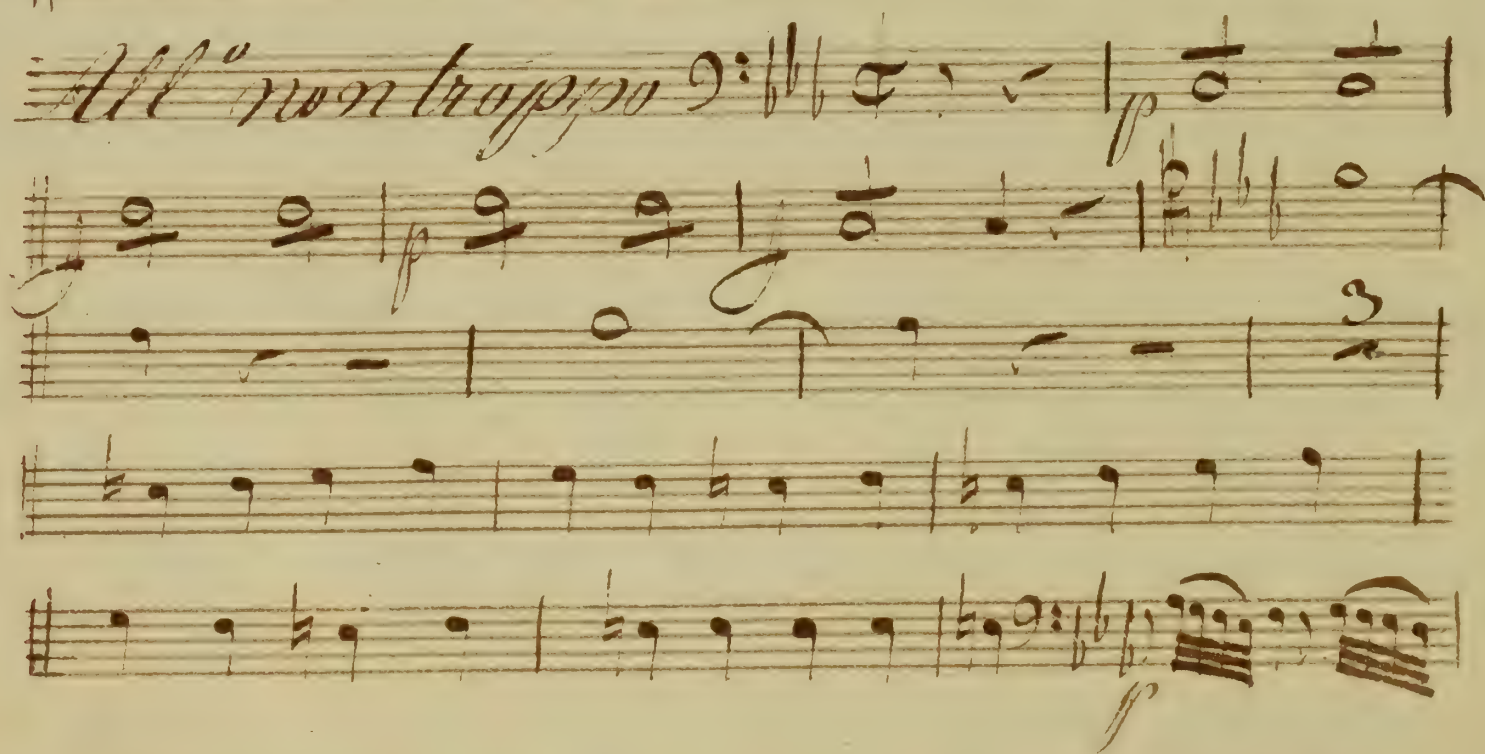 All° non troppo
p
f p f
3
p